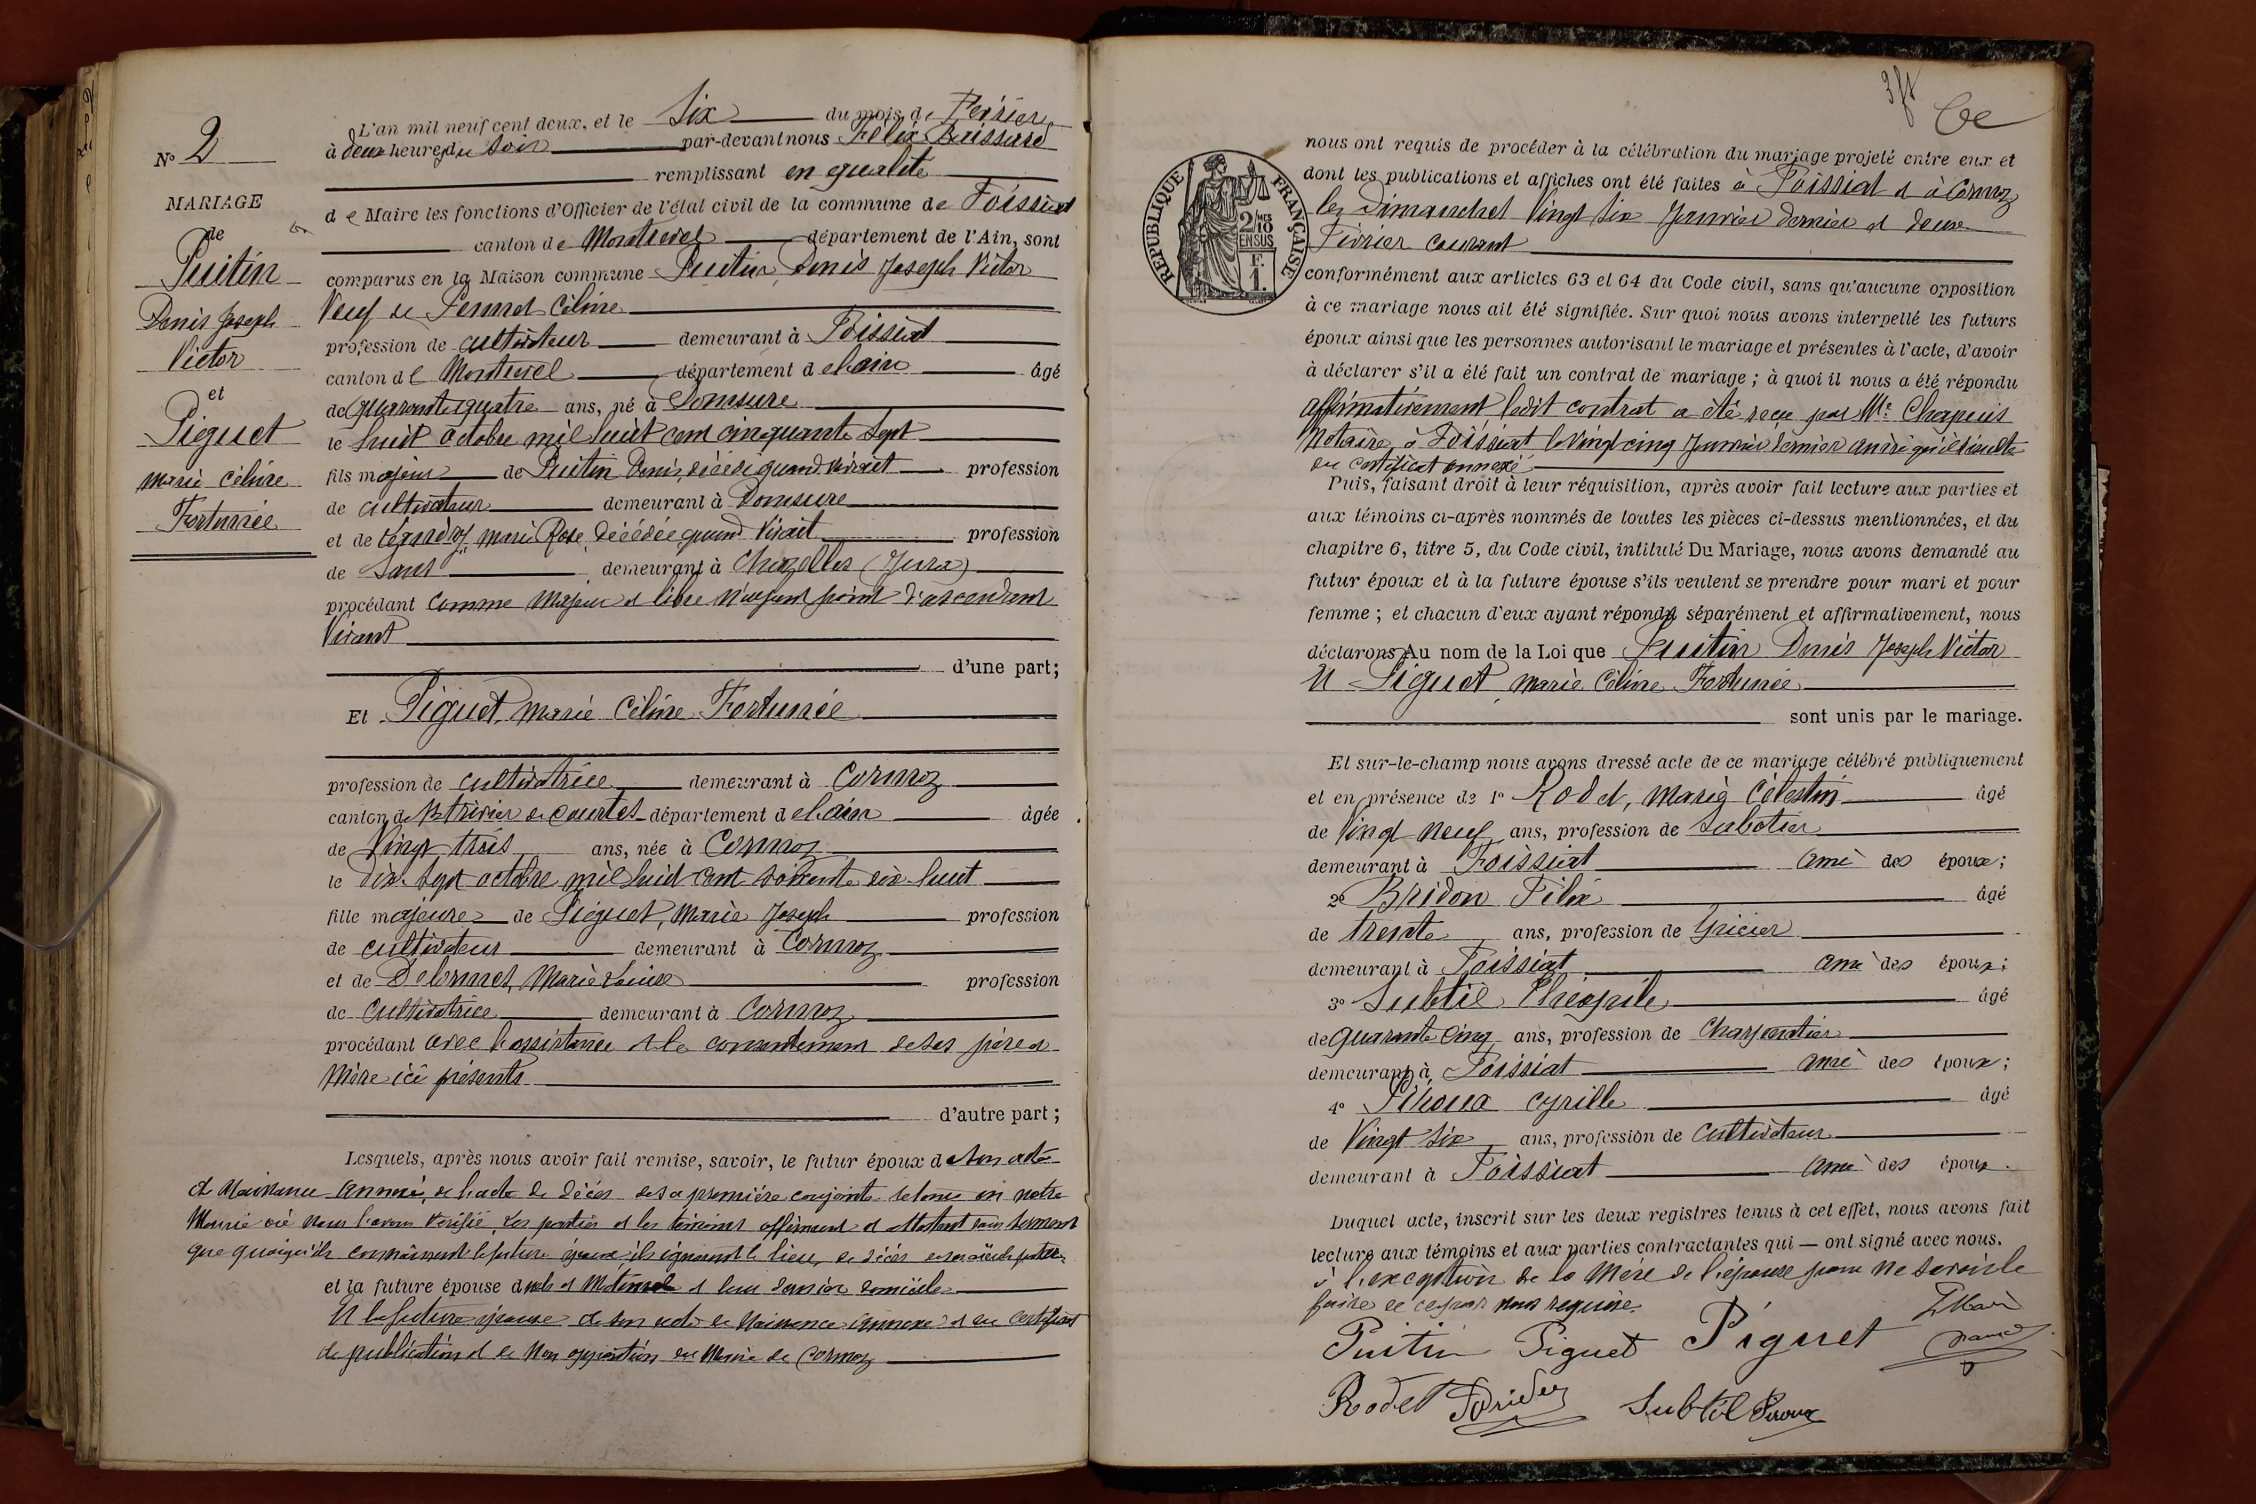 N° 2
MARIAGE
de
Puitin
Denis Joseph
Victor
et
Piguet
marie Céline
Fortunée
L'an mil neuf cent deux, et le Six du mois de Février
à deux heures du Soir par-devant nous Félix
remplissant en qualité
de Maire les fonctions d'Officier de l'état civil de la commune de Foissiat
canton de Montrevel département de l'Ain, sont
comparus en la Maison commune Puitin Denis Joseph Victor
Veuf de Céline
profession de cultivateur demeurant à Foissiat
canton de Montrevel département de l'ain âgé
de quarante quatre ans, né à Domsure
le huit octobre mil huit cent cinquante Sept
fils majeur de Puitin Denis, décédé quand vivait profession
de cultivateur demeurant à Domsure
et de marie Rose, décédée quand Vivait profession
de Sans demeurant à Chazelles (Jura)
procédant comme Majeur et libre n'ayant point d'ascendant
Vivant
d'une part;
Et Piguet, marie Céline Fortunée
profession de cultivatrice demeurant à Cormoz
canton de St trivier de courtes département de l'ain âgée
de Vingt trois ans, née à Cormoz
le dix-Sept octobre mil huit cent soixante dix-huit
fille majeure de Piguet, Marie Joseph profession
de cultivateur demeurant à Cormoz
et de Delormet, Marie Louise profession
de cultivatrice demeurant à Cormoz
procédant avec l'assistance et le consentement de ses père et
Mère ici présents
d'autre part;
Lesquels, après nous avoir fait remise, savoir, le futur époux de Son acte
de Naissance annexé, de l'acte de décès de sa première conjointe retenu en notre
Mairie où nous l'avons vérifié, Les parties et les témoins affirment et attestent sous serment
que quoiqu'ils connaissent le futur époux, ils ignorent le lieu de décès de ses aïeuls paternels
et la future épouse et Maternels et leur dernier domicile
Et la future épouse de son acte de Naissance annexé et du certificat
de publication et de Non opposition du Maire de Cormoz
nous ont requis de procéder à la célébration du mariage projeté entre eux et
dont les publications et affiches ont été faites à Foissiat et à Cormoz
les Dimanches Vingt Six Janvier dernier et deux
Février courant
RÉPUBLIQUE FRANÇAISE
2/10
EN SUS
F.
1.
conformément aux articles 63 et 64 du Code civil, sans qu'aucune opposition
à ce mariage nous ait été signifiée. Sur quoi nous avons interpellé les futurs
époux ainsi que les personnes autorisant le mariage et présentes à l'acte, d'avoir
à déclarer s'il a été fait un contrat de mariage; à quoi il nous a été répondu
affirmativement ledit contrat a été reçu par Me Chapuis
Notaire à Foissiat le Vingt cinq Janvier dernier ainsi qu'il résulte
du certificat annexé
Puis, faisant droit à leur réquisition, après avoir fait lecture aux parties et
aux témoins ci-après nommés de toutes les pièces ci-dessus mentionnées, et du
chapitre 6, titre 5, du Code civil, intitulé Du Mariage, nous avons demandé au
futur époux et à la future épouse s'ils veulent se prendre pour mari et pour
femme; et chacun d'eux ayant répondu séparément et affirmativement, nous
déclarons Au nom de la Loi que Puitin Denis Joseph Victor
Et Piguet marie Céline Fortunée
sont unis par le mariage.
Et sur-le-champ nous avons dressé acte de ce mariage célébré publiquement
et en présence de 1° Rodet, Marie Célestin âgé
de Vingt neuf ans, profession de Sabotier
demeurant à Foissiat ami des époux;
2° Bridon Félix âgé
de trente ans, profession de Epicier
demeurant à Foissiat ami des époux;
3° Subtil Théophile âgé
de quarante cinq ans, profession de Charpentier
demeurant à Foissiat ami des époux;
4° Piroux Cyrille âgé
de Vingt Six ans, profession de Cultivateur
demeurant à Foissiat ami des époux.
Duquel acte, inscrit sur les deux registres tenus à cet effet, nous avons fait
lecture aux témoins et aux parties contractantes qui — ont signé avec nous.
à l'exception de la Mère de l'épouse pour ne Savoir le
faire de ce par nous requise.
Puitin Piguet Piguet
Rodet Bridon Subtil Piroux